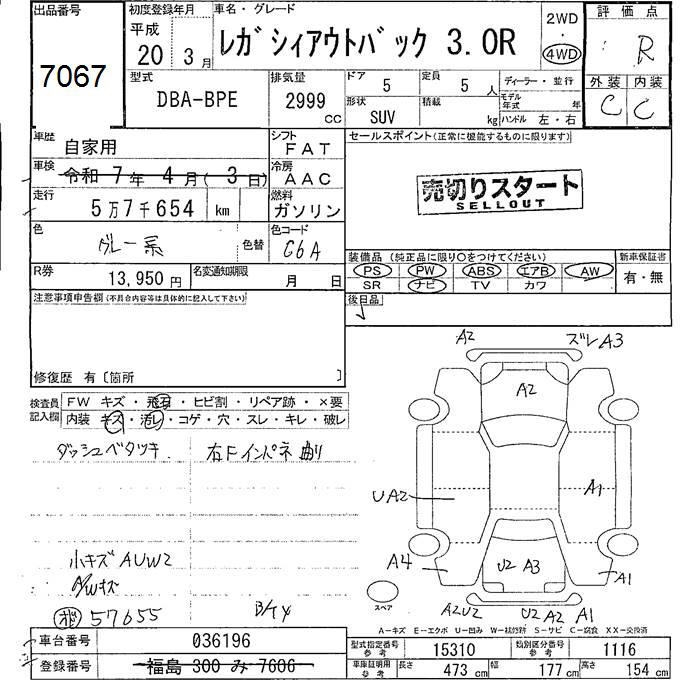 出品番号
7067
初度登録年月
平成 20 3月
車名・グレード
レガシィアウトバック 3.0R
2WD
・
4WD
評価点
R
外装 内装
C C
型式
DBA-BPE
排気量
2999 cc
ドア 5
形状 SUV
定員 5 人
積載 kg
ディーラー・並行
モデル年式 年
ハンドル 左・右
車歴 自家用
シフト FAT
車検 令和 7年 4月( 3日)
冷房 AAC
走行 5万7千654 km
燃料 ガソリン
色 グレー系 色替
色コード C6A
R券 13,950 円
名変通知期限 月 日
セールスポイント(正常に機能するものに限ります)
売切りスタート
SELLOUT
装備品 (純正品に限り○をつけてください) 新車保証書
PS PW ABS エアB AW 有・無
SR ナビ TV カワ
後日品
注意事項申告欄(不具合内容等は具体的に記入して下さい)
修復歴 有〔箇所 〕
検査員記入欄
FW キズ・飛石・ヒビ割・リペア跡・×要
内装 キズ・汚レ・コゲ・穴・スレ・キレ・破レ
ダッシュベタツキ
右Fインパネ曲り
小キズ AUW2
A/Wキズ
57655
A2 ズレA3
A2
UA2
A1
A4
U2 A3
A1
スペア
A2U2 U2 A2 A1
A-キズ E-エクボ U-凹み W-補修跡 S-サビ C-腐食 XX-交換済
車台番号 036196
登録番号 福島 300 み 7606
型式指定番号 参考 15310
類別区分番号 参考 1116
車庫証明用 参考 長さ 473 cm 幅 177 cm 高さ 154 cm